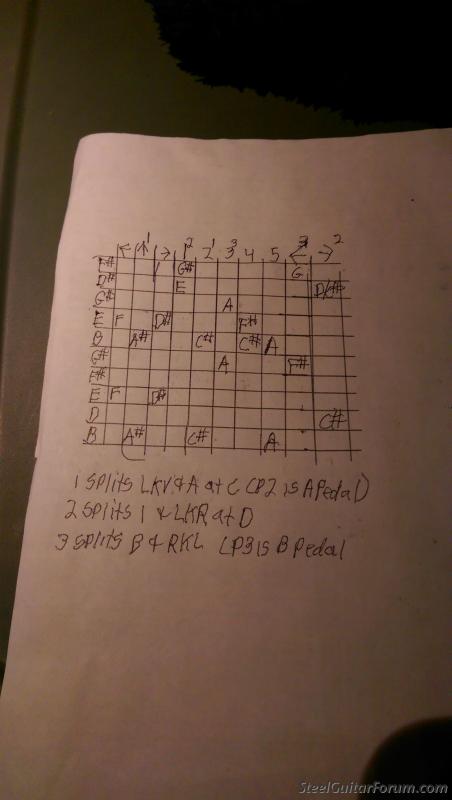 ← ↑1 → 1 2 2 1 3 3 4 5 ← 3 → 2
F# G# G
D# E D/C#
G# A
E F D# F#
B A# C# C# A
G# A F#
F#
E F D#
D C#
B A# C# A
1 splits LKV & A at C (P2 is A Pedal)
2 splits 1 & LKR at D
3 splits B & RKL (P3 is B Pedal
SteelGuitarForum.com